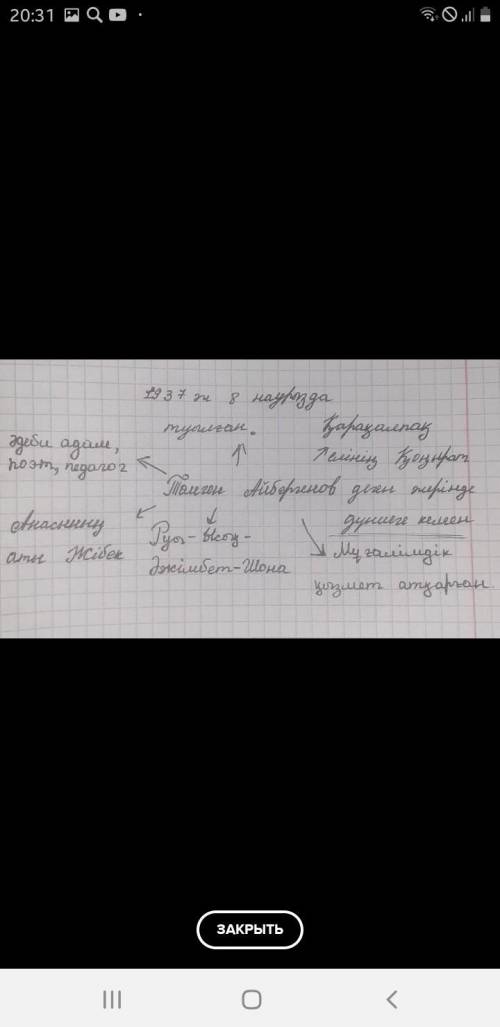 20:31
1937 ж 8 наурызда
туылған.
Әдеби адам,
поэт, педагог
Қарақалпақ
елінің Қоңырат
Төлеген Айбергенов деген жерінде
дүниеге келген
Анасының
аты Жібек
Руы- Ысты-
Әжімбет-Шона
Мұғалімдік
қызмет атқарған.
ЗАКРЫТЬ